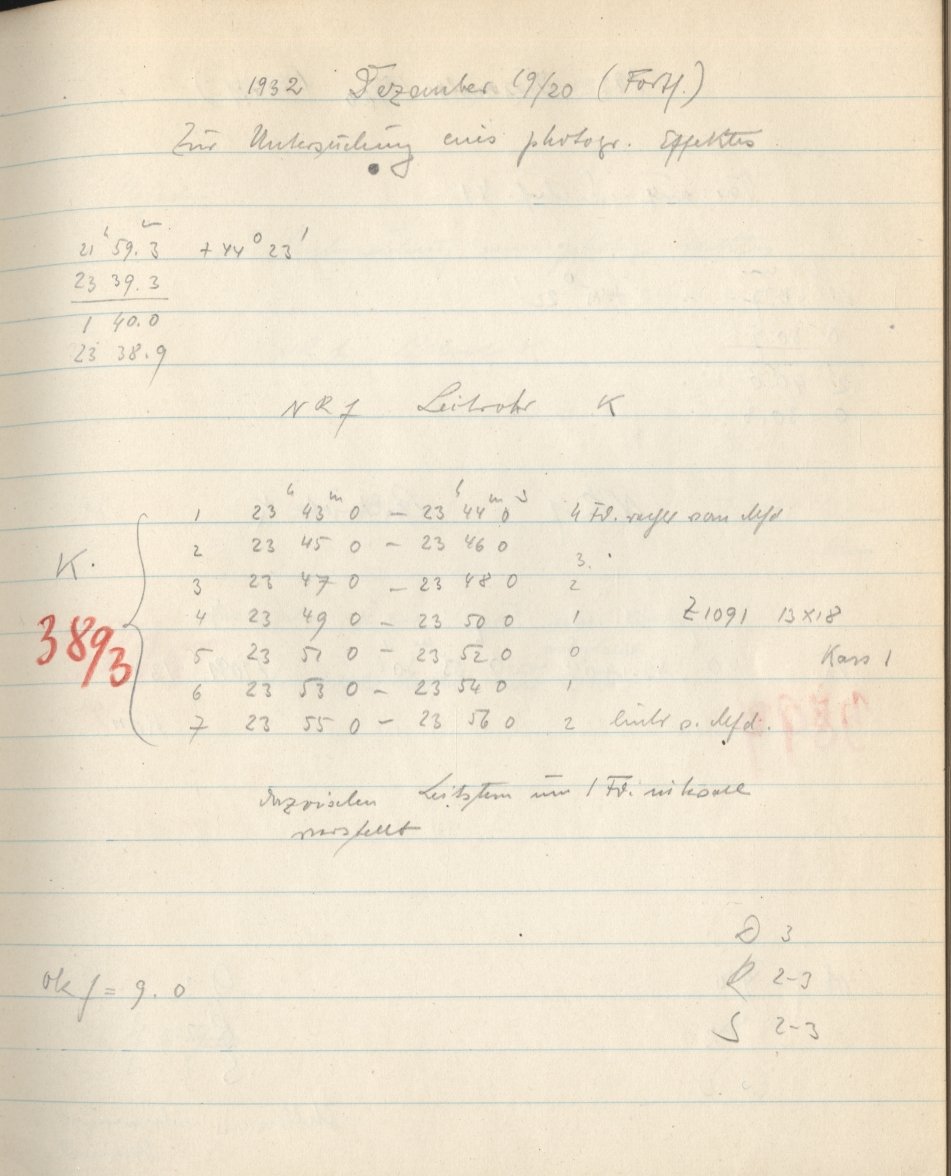 1932 Dezember 19/20 (Forts.)
Zur Untersuchung eines photogr. Effektes
21 h 59. m 3 + 44° 23'
23 39.3
1 40.0
23 38.9
NR f Leitrohr K
1 23 h 43 m 0 – 23 h 44 m 0 s 4 Fd. rechts vom Mfd
2 23 45 0 – 23 46 0 3.
3 23 47 0 – 23 48 0 2
K. 3893
4 23 49 0 – 23 50 0 1 Z 1091 13x18
5 23 51 0 – 23 52 0 0 Kass 1
6 23 53 0 – 23 54 0 1
7 23 55 0 – 23 56 0 2 links v. Mfd.
dazwischen Leitstern um 1 Fd.
verstellt
D 3
Ok f = 9.0
R 2-3
S 2-3